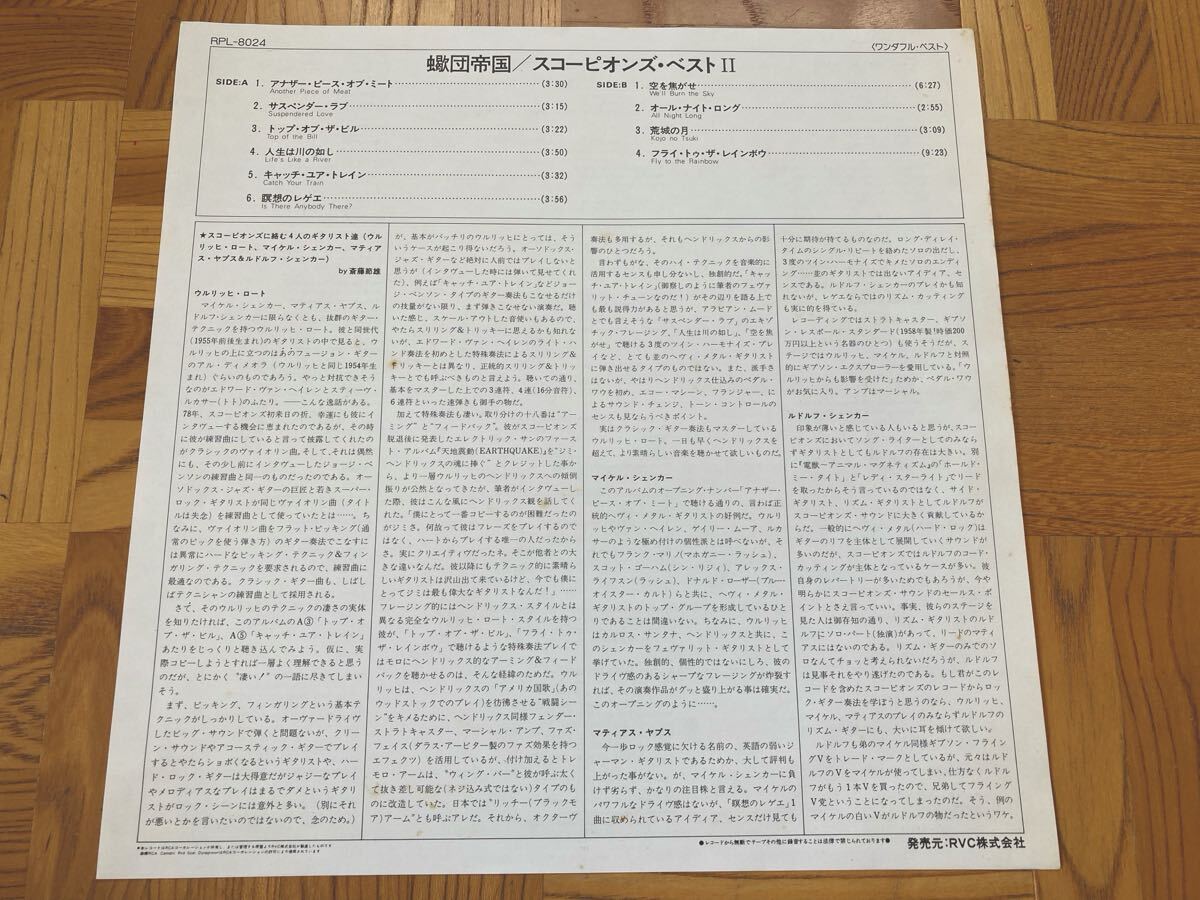 RPL-8024
〈ワンダフル・ベスト〉
蠍団帝国／スコーピオンズ・ベストII
SIDE:A 1. アナザー・ピース・オブ・ミート (3:30)
Another Piece of Meat
2. サスペンダー・ラブ (3:15)
Suspendered Love
3. トップ・オブ・ザ・ビル (3:22)
Top of the Bill
4. 人生は川の如し (3:50)
Life's Like a River
5. キャッチ・ユア・トレイン (3:32)
Catch Your Train
6. 瞑想のレゲエ (3:56)
Is There Anybody There?
SIDE:B 1. 空を焦がせ (6:27)
We'll Burn the Sky
2. オール・ナイト・ロング (2:55)
All Night Long
3. 荒城の月 (3:09)
Kojo no Tsuki
4. フライ・トゥ・ザ・レインボウ (9:23)
Fly to the Rainbow
★スコーピオンズに絡む4人のギタリスト達（ウル
リッヒ・ロート、マイケル・シェンカー、マティア
ス・ヤプス＆ルドルフ・シェンカー）
by 斎藤節雄
ウルリッヒ・ロート
マイケル・シェンカー、マティアス・ヤプス、ル
ドルフ・シェンカーに限らなくとも、抜群のギター・
テクニックを持つウルリッヒ・ロート。彼と同世代
(1955年前後生まれ)のギタリストの中で見ると、ウ
ルリッヒの上に立つのはあのフュージョン・ギター
のアル・ディメオラ（ウルリッヒと同じ1954年生ま
れ）ぐらいのものであろう。やっと対抗できそう
なのがエドワード・ヴァン・ヘイレンとスティーヴ・
ルカサー(トト)のふたり。――こんな逸話がある。
78年、スコーピオンズ初来日の折、幸運にも彼にイ
ンタヴューする機会に恵まれたのであるが、その時
に彼が練習曲にしていると言って披露してくれたの
がクラシックのヴァイオリン曲。そして、それは偶然
にも、その少し前にインタヴューしたジョージ・ベ
ンソンの練習曲と同一のものだったのである。オー
ソドックス・ジャズ・ギターの巨匠と若きスーパー・
ロック・ギタリストが同じヴァイオリン曲（タイト
ルは失念）を練習曲として使っていたとは……。ち
なみに、ヴァイオリン曲をフラット・ピッキング(通
常のピックを使う弾き方）のギター奏法でこなすに
は異常にハードなピッキング・テクニック＆フィン
ガリング・テクニックを要求されるので、練習曲に
最適なのである。クラシック・ギター曲も、しばし
ばテクニシャンの練習曲として採用される。
さて、そのウルリッヒのテクニックの凄さの実体
を知りたければ、このアルバムのA③「トップ・オ
ブ・ザ・ビル」、A⑤「キャッチ・ユア・トレイン」
あたりをじっくりと聴き込んでみよう。仮に、実
際コピーしようとすれば一層よく理解できると思う
のだが、とにかく"凄い！"の一語に尽きてしまい
そう。
まず、ピッキング、フィンガリングという基本テ
クニックがしっかりしている。オーヴァードライヴ
したビッグ・サウンドで弾くと問題ないが、クリー
ン・サウンドやアコースティック・ギターでプレイ
するとやたらショボくなるというギタリストや、ハ
ード・ロック・ギターは大得意だがジャジーなプレイ
やメロディアスなプレイはまるでダメというギタリ
ストがロック・シーンには意外と多い。（別にそれ
が悪いとかを言いたいのではないので、念のため。）
が、基本がバッチリのウルリッヒにとっては、そう
いうケースが起こり得ないだろう。オーソドックス・
ジャズ・ギターなど絶対に人前ではプレイしないと
思うが（インタヴューした時には弾いて見せてくれ
た）、例えば「キャッチ・ユア・トレイン」などジョー
ジ・ベンソン・タイプのギター奏法もこなせるだけ
の技量がない限り、まず弾きこなせない演奏だ。聴
いた感じ、スケール・アウトした音使いもあるので、
やたらスリリング＆トリッキーに思えるかも知れな
いが、エドワード・ヴァン・ヘイレンのライト・ハ
ンド奏法を初めとした特殊奏法によるスリリング＆
トリッキーとは異なり、正統的スリリング＆トリッ
キーとでも呼ぶべきものと言えよう。聴いての通り、
基本をマスターした上での3連符、4連(16分音符)、
6連符といった速弾きも御手の物だ。
加えて特殊奏法も凄い。取り分けの十八番は"アー
ミング"と"フィードバック"。彼がスコーピオンズ
脱退後に発表したエレクトリック・サンのファース
ト・アルバム『天地震動(EARTHQUAKE)』を"ジミ・
ヘンドリックスの魂に捧ぐ"とクレジットした事か
ら、より一層ウルリッヒのヘンドリックスへの傾倒
振りが公然となってきたが、筆者がインタヴューし
た際、彼はこんな風にヘンドリックス観を話してく
れた。「僕にとって一番コピーするのが困難だったの
がジミさ。何故って彼はフレーズをプレイするので
はなく、ハートからプレイする唯一の人だったから
さ。実にクリエイティヴだったネ。そこが他者との大
きな違いなんだ。彼以降にもテクニック的に素晴ら
しいギタリストは沢山出て来ているけど、今でも僕に
とってジミは最も偉大なギタリストなんだ！」……
フレージング的にはヘンドリックス・スタイルとは
異なる完全なウルリッヒ・ロート・スタイルを持つ
彼が、「トップ・オブ・ザ・ビル」、「フライ・トゥ・
ザ・レインボウ」で聴けるような特殊奏法プレイで
はモロにヘンドリックス的なアーミング＆フィード
バックを聴かせるのは、そんな経緯のためだ。ウル
リッヒは、ヘンドリックスの「アメリカ国歌」(あの
ウッドストックでのプレイ)を彷彿させる"戦闘シー
ン"をキメるために、ヘンドリックス同様フェンダー・
ストラトキャスター、マーシャル・アンプ、ファズ・
フェイス(ダラス・アービター製のファズ効果を持つ
エフェクツ）を活用しているが、付け加えるとトレ
モロ・アームは、"ウィング・バー"と彼が呼ぶ太く
て抜き差し可能な(ネジ込み式ではない)タイプのも
のに改造していた。日本では"リッチー(ブラックモ
ア)アーム"とも呼ぶアレだ。それから、オクターヴ
奏法も多用するが、それもヘンドリックスからの影響
のひとつだろう。
言わずもがな、そのハイ・テクニックを音楽的に
活用するセンスも申し分ないし、独創的だ。「キャッ
チ・ユア・トレイン」(御察しのように筆者のフェヴァ
リット・チューンなのだ！)がその辺りを語る上で
も最も説得力があると思うが、アラビアン・ムード
とでも言えそうな「サスペンダー・ラブ」のエキゾ
チック・フレージング、「人生は川の如し」、「空を焦
がせ」で聴ける3度のツイン・ハーモナイズ・プレ
イなど、とても並のヘヴィ・メタル・ギタリスト
に弾き出せるタイプのものではない。また、派手さ
はないが、やはりヘンドリックス仕込みのペダル・
ワウを初め、エコー・マシーン、フランジャー、に
よるサウンド・チェンジ、トーン・コントロールの
センスも見ならうべきポイント。
実はクラシック・ギター奏法もマスターしている
ウルリッヒ・ロート、一日も早くヘンドリックスを
超えて、より素晴らしい音楽を聴かせて欲しいものだ。
マイケル・シェンカー
このアルバムのオープニング・ナンバー「アナザー・
ピース・オブ・ミート」で聴ける通り、の言わば正
統的ヘヴィ・メタル・ギタリストの好例だ。ウルリ
ッヒやヴァン・ヘイレン、ゲイリー・ムーア、ルカ
サーのような極め付けの個性派とは呼べないが、そ
れでもフランク・マリノ(マホガニー・ラッシュ)、
スコット・ゴーハム(シン・リジィ)、アレックス・
ライフスン(ラッシュ)、ドナルド・ローザー(ブルー・
オイスター・カルト）らと共に、ヘヴィ・メタル・
ギタリストのトップ・グループを形成しているひと
りであることは間違いない。ちなみに、ウルリッヒ
はカルロス・サンタナ、ヘンドリックスと共に、こ
のシェンカーをフェヴァリット・ギタリストとして
挙げていた。独創的、個性的ではないにしろ、彼の
ドライヴ感のあるシャープなフレージングが炸裂す
れば、その演奏作品がグッと盛り上がる事は確実だ。
このオープニングのように……。
マティアス・ヤプス
今一歩ロック感覚に欠ける名前の、英語の弱いジ
ャーマン・ギタリストであるためか、大して評判も
上がった事がない。が、マイケル・シェンカーに負
けず劣らず、かなりの注目株と言える。マイケルの
パワフルなドライヴ感はないが、「瞑想のレゲエ」1
曲に収められているアイディア、センスだけ見ても
十分に期待が持てるものなのだ。ロング・ディレイ・
タイムのシングル・リピートを絡めたソロの出だし、
3度のツイン・ハーモナイズでキメたソロのエンディ
ング……並のギタリストでは出ないアイディア、セ
ンスである。ルドルフ・シェンカーのプレイかも知
れないが、レゲエならではのリズム・カッティング
も実に的を得ている。
レコーディングではストラトキャスター、ギブソ
ン・レスポール・スタンダード(1958年製！時価200
万円以上という名器のひとつ）も使うそうだが、ス
テージではウルリッヒ、マイケル、ルドルフと対照
的にギブソン・エクスプローラーを愛用している。「ウ
ルリッヒからも影響を受けた」ためか、ペダル・ワウ
がお気に入り。アンプはマーシャル。
ルドルフ・シェンカー
印象が薄いと感じている人もいると思うが、スコー
ピオンズにおいてソング・ライターとしてのみなら
ずギタリストとしてもルドルフの存在は大きい。別
に『電獣～アニマル・マグネティズム』の「ホールド・
ミー・タイト」と「レディ・スターライト」でリード
を取ったからそう言っているのではなく、サイド・
ギタリスト、リズム・ギタリストとしてルドルフが
スコーピオンズ・サウンドに大きく貢献しているか
らだ。一般的にヘヴィ・メタル(ハード・ロック)は
ギターのリフを主体として展開していくサウンドが
多いのだが、スコーピオンズではルドルフのコード・
カッティングが主体となっているケースが多い。彼
自身のレパートリーが多いためでもあろうが、今や
明らかにスコーピオンズ・サウンドのセールス・ポ
イントとさえ言っていい。事実、彼らのステージを
見た人は御存知の通り、リズム・ギタリストのルド
ルフにソロ・パート(独演)があって、リードのマティ
アスにはないのである。リズム・ギターのみでのソ
ロなんてチョッと考えられないだろうが、ルドルフ
は見事それをやり遂げたのである。もし君がこのレ
コードを含めたスコーピオンズのレコードからロッ
ク・ギター奏法を学ぼうと思うのなら、ウルリッヒ、
マイケル、マティアスのプレイのみならずルドルフの
リズム・ギターにも、大いに耳を傾けて欲しい。
ルドルフも弟のマイケル同様ギブソン・フライン
グVをトレード・マークとしているが、元々はルド
ルフのVをマイケルが使ってしまい、仕方なくルドル
フがもう1本Vを買ったので、兄弟してフライング
V党ということになってしまったのだ。そう、例の
マイケルの白いVがルドルフの物だったというワケ。
●レコードから無断でテープその他に録音することは法律で禁じられております●
発売元:RVC株式会社